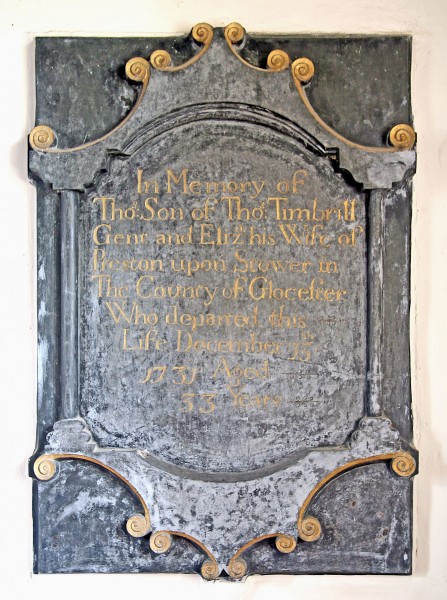 In Memory of
Thoˢ. Son of Thoˢ. Timbrill
Gent and Elizᵃ. his Wife of
Preston upon Stower in
The County of Glocester
Who departed this
Life December
1731 Aged
33 Years